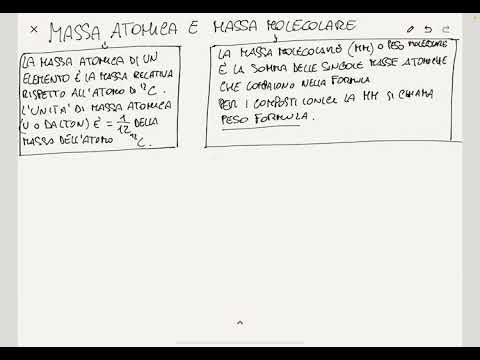 MASSA ATOMICA E MASSA MOLECOLARE
LA MASSA ATOMICA DI UN
ELEMENTO È LA MASSA RELATIVA
RISPETTO ALL'ATOMO DI ¹²C.
L'UNITA' DI MASSA ATOMICA
(U O DALTON) È = 1/12 DELLA
MASSA DELL'ATOMO ¹²C.
LA MASSA MOLECOLARE (MM) O PESO MOLECOLARE
È LA SOMMA DELLE SINGOLE MASSE ATOMICHE
CHE COMPAIONO NELLA FORMULA
PER I COMPOSTI IONICI LA MM SI CHIAMA
PESO FORMULA.